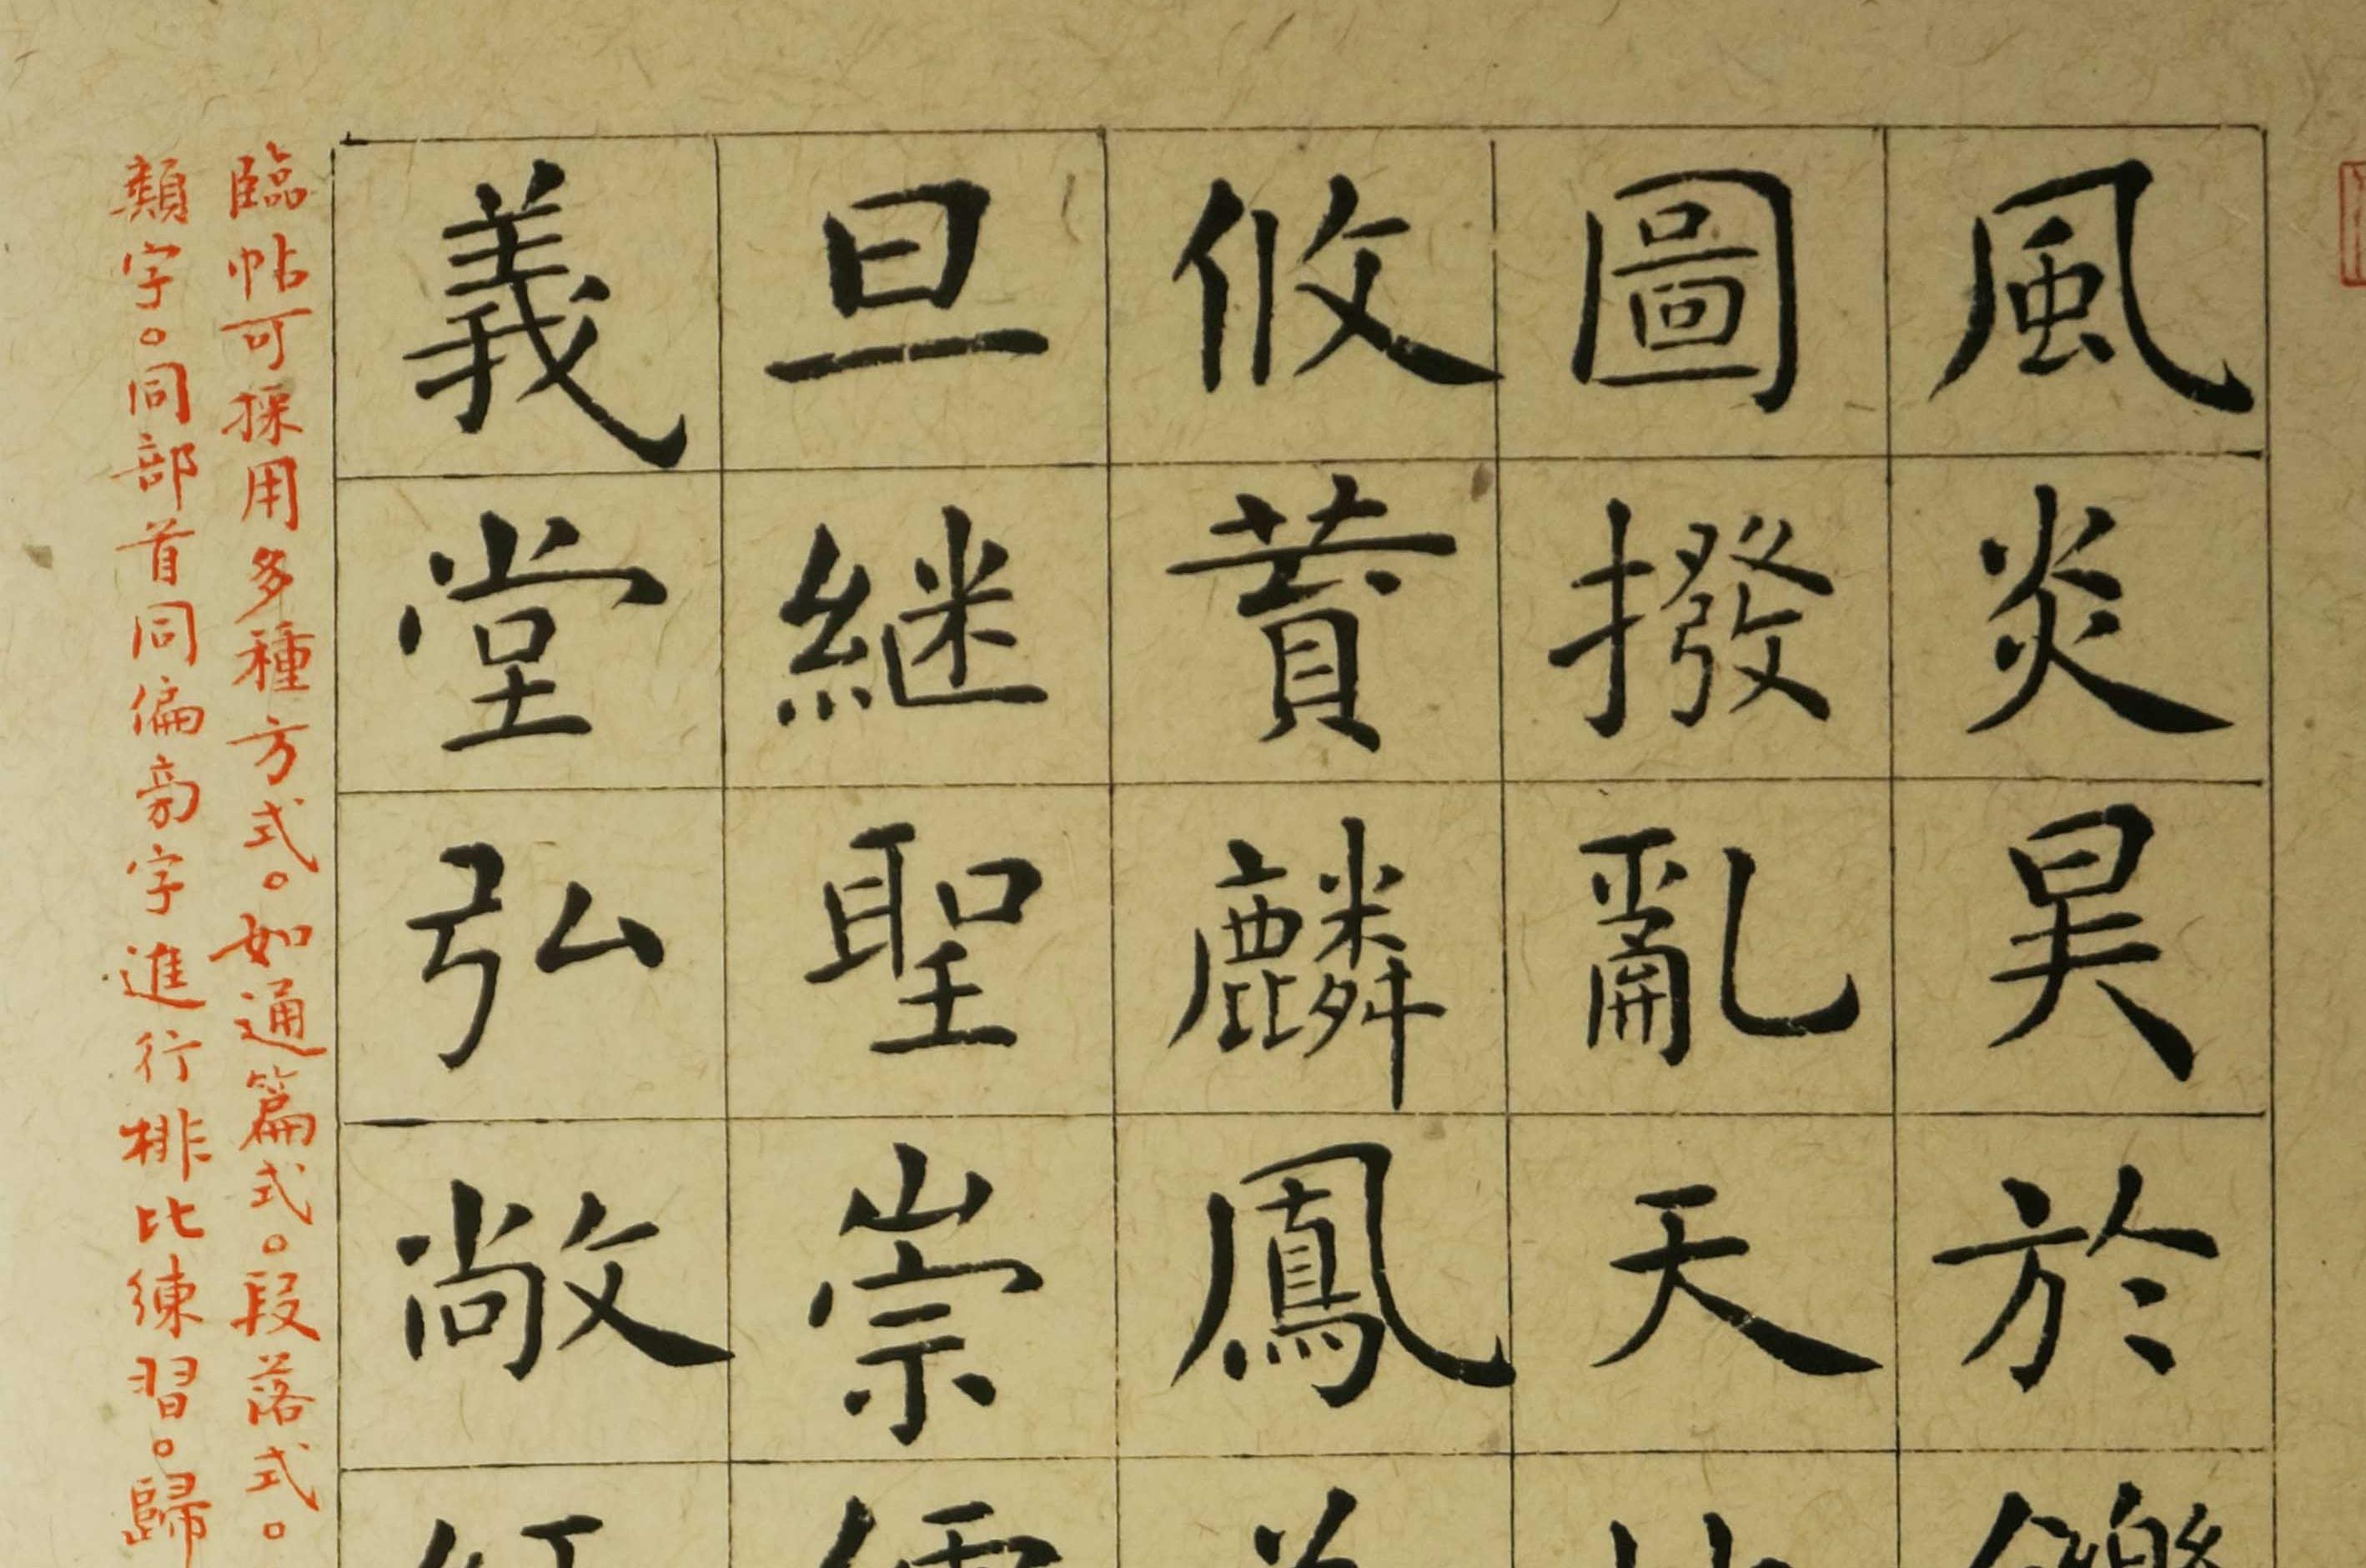 風炎昊於
圖撥亂天
攸蕡麟鳳
旦継聖崇
義堂弘敞
臨帖可採用多種方式。如通篇式。段落式。
類字。同部首同偏旁字進行排比練習。歸